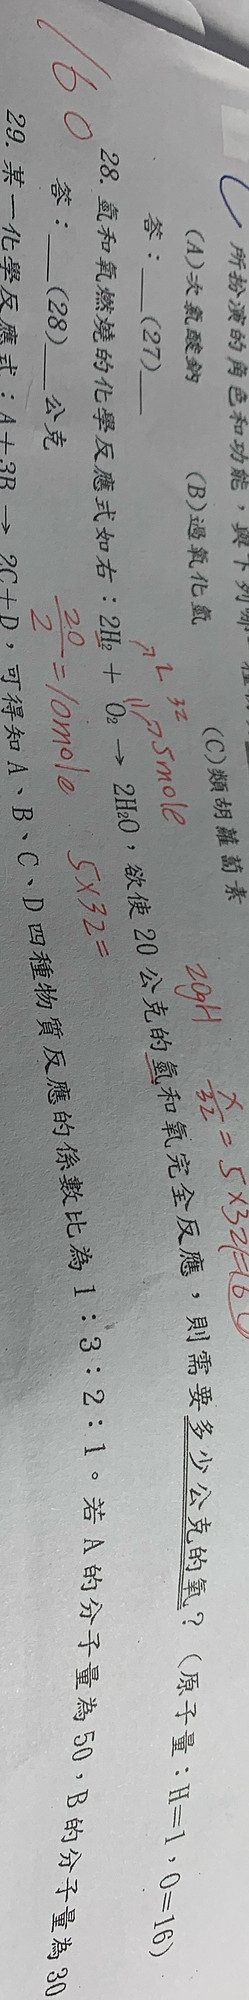 所扮演的角色和功能,與下列哪
(A)次氯酸鈉 (B)過氧化氫 (C)類胡蘿蔔素
答:__(27)__
20gH x/32 = 5×32=160
2 32
5mole
28. 氫和氧燃燒的化學反應式如右:2H₂ + O₂ → 2H₂O,欲使20公克的氫和氧完全反應,則需要多少公克的氧?(原子量:H=1,O=16)
160
答:__(28)__公克
20/2 = 10mole 5×32=
29. 某一化學反應式:A+3B → 2C+D,可得知A、B、C、D四種物質反應的係數比為1:3:2:1。若A的分子量為50,B的分子量為30